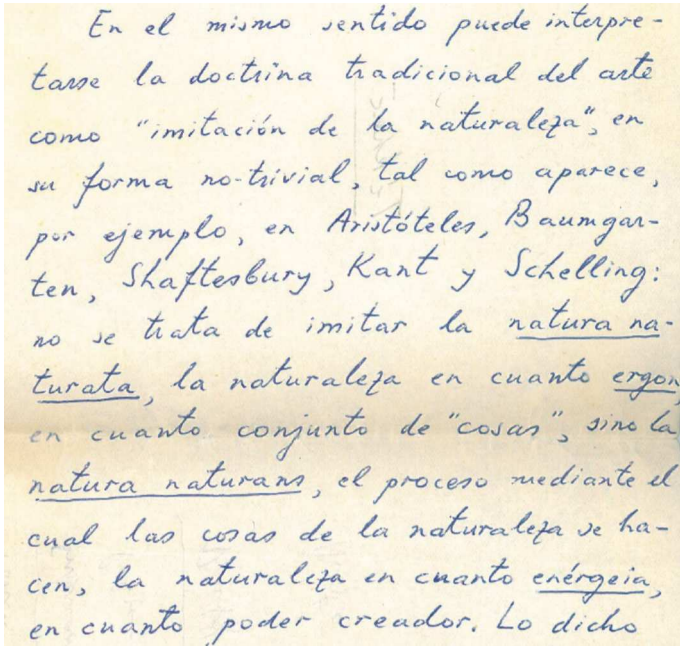 En el mismo sentido puede interpre-
tarse la doctrina tradicional del arte
como "imitación de la naturaleza", en
su forma no-trivial, tal como aparece,
por ejemplo, en Aristóteles, Baumgar-
ten, Shaftesbury, Kant y Schelling:
no se trata de imitar la natura na-
turata, la naturaleza en cuanto ergon,
en cuanto conjunto de "cosas", sino la
natura naturans, el proceso mediante el
cual las cosas de la naturaleza se ha-
cen, la naturaleza en cuanto enérgeia,
en cuanto poder creador. Lo dicho